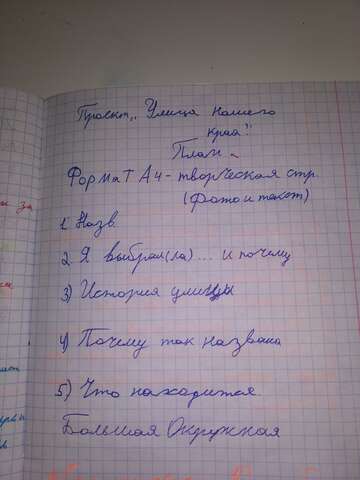 Проект „Улица нашего
края"
План.
Формат А4 - творческая стр.
(Фото и текст)
1. Назв.
2. Я выбрал(ла)... и почему
3) История улицы
4) Почему так названа
5) Что находится
Большая Окружная